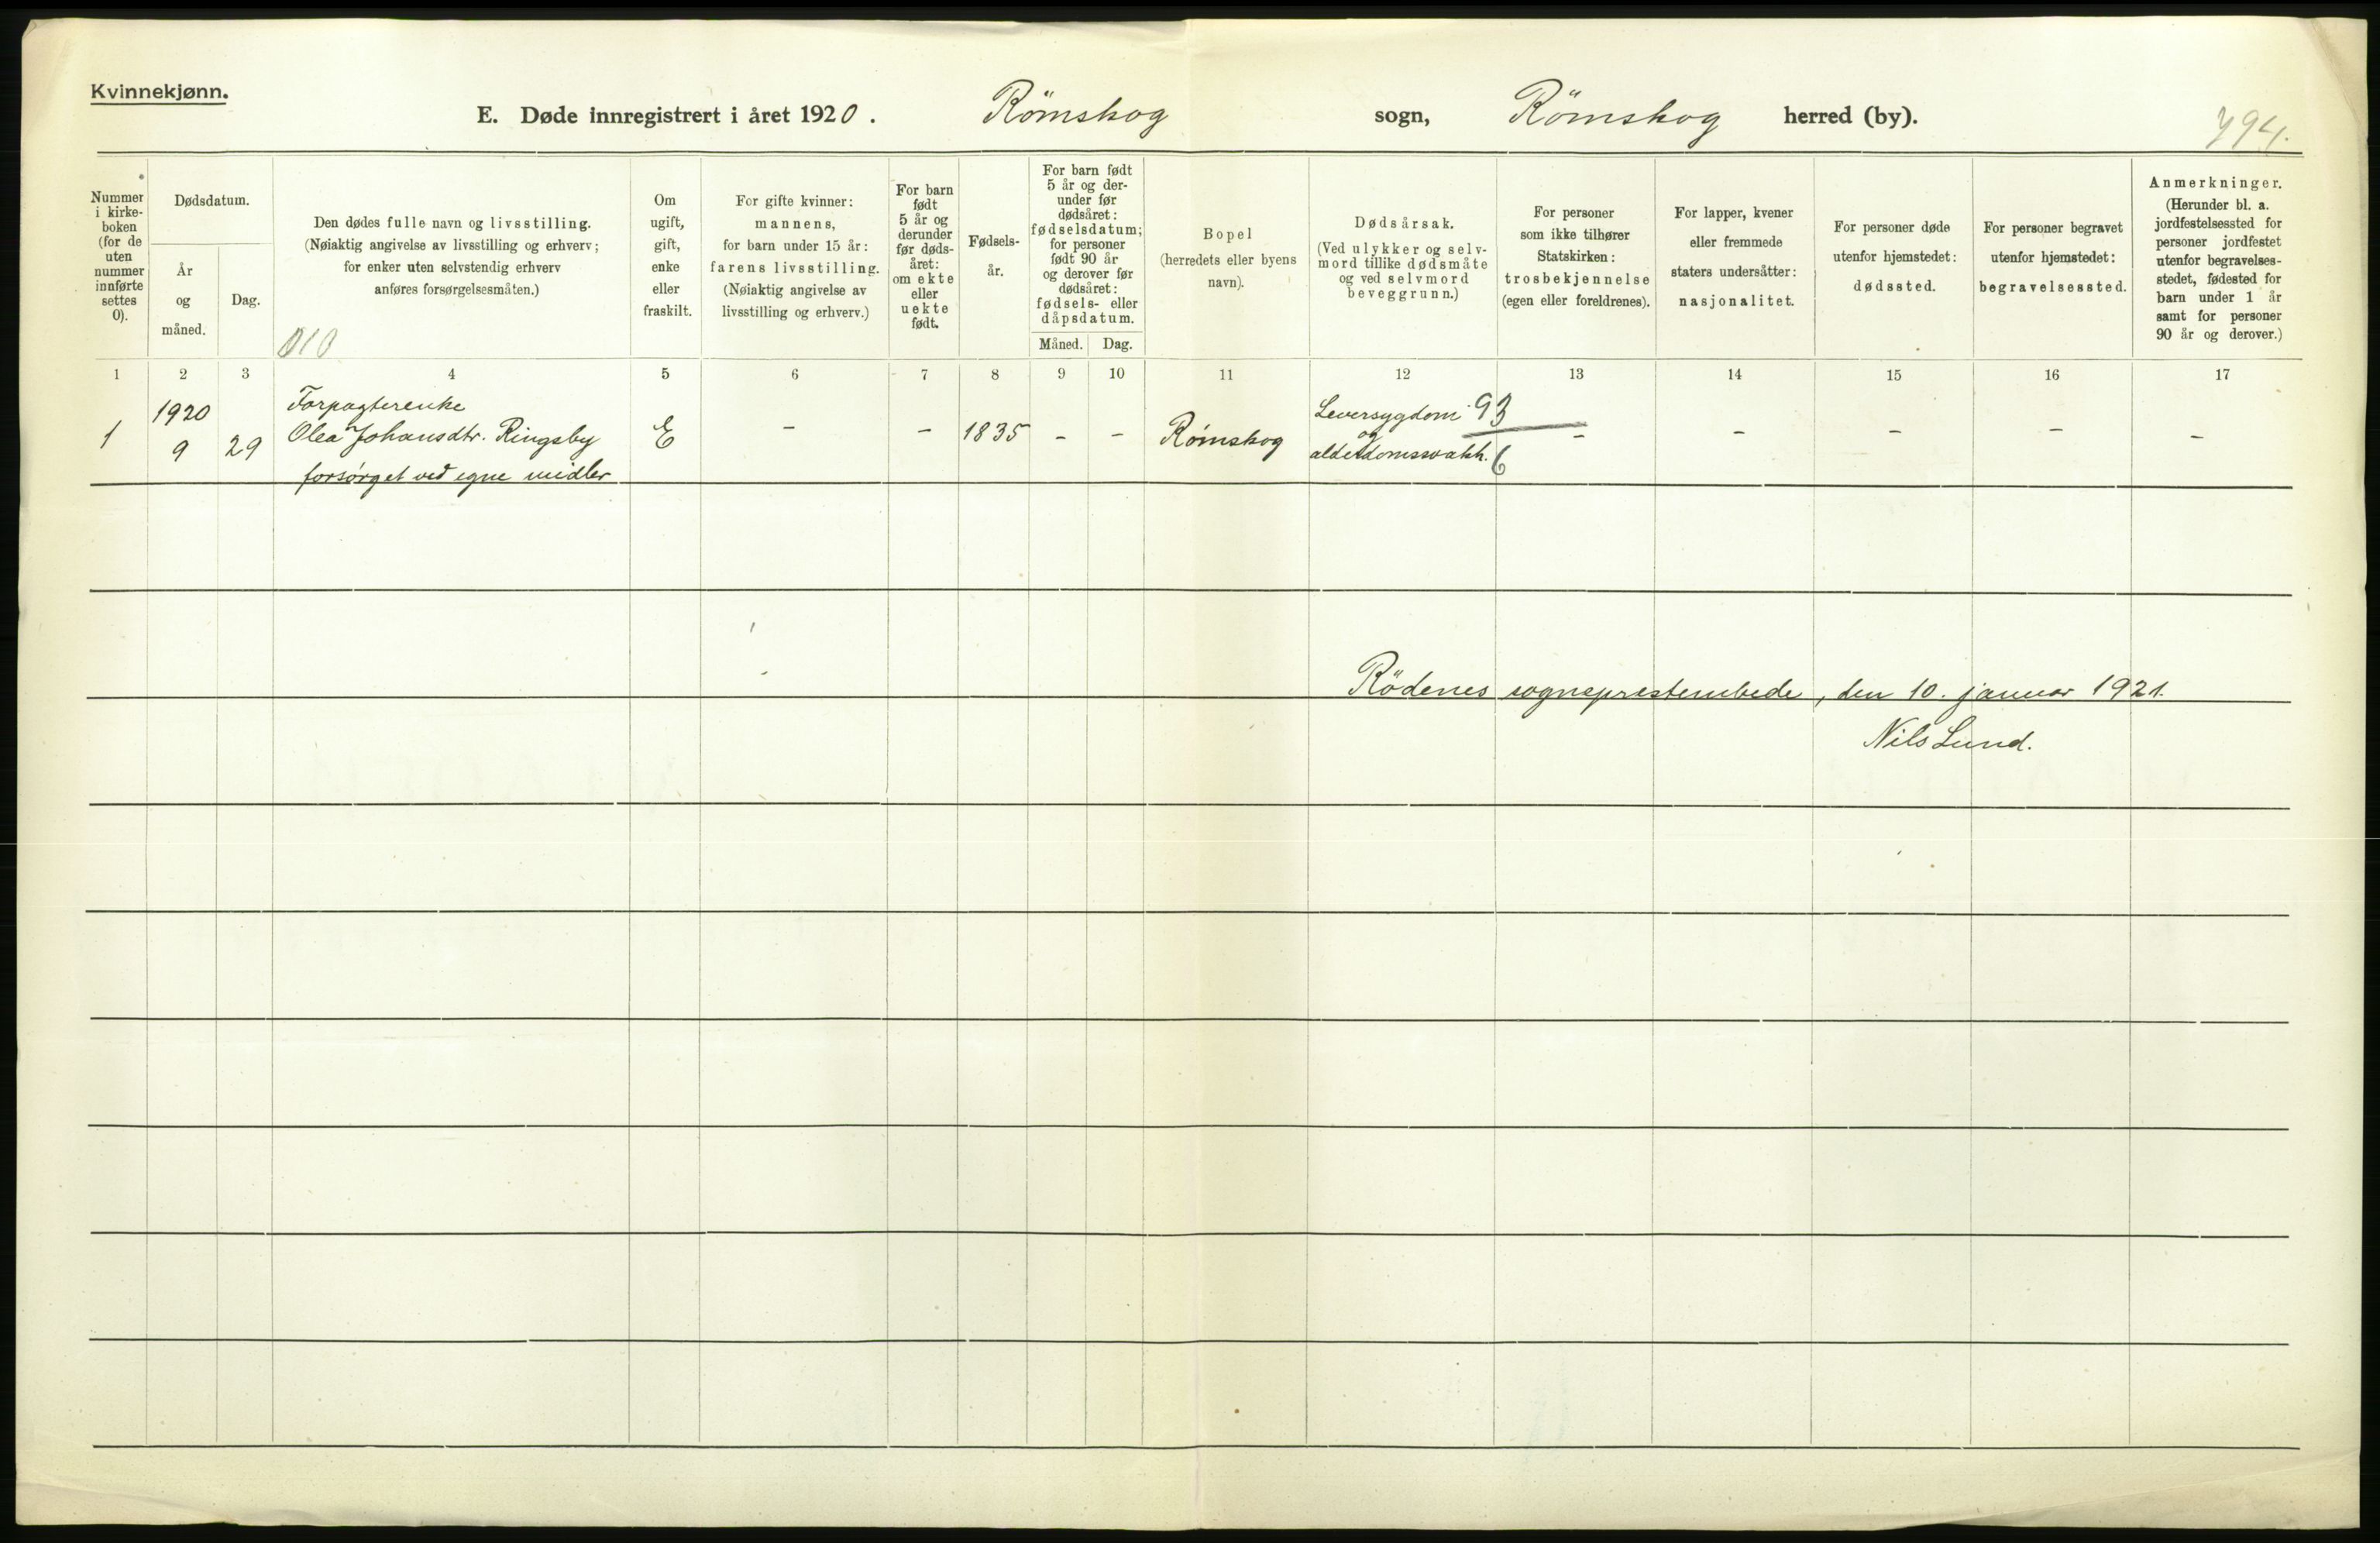 Kvinnekjønn.
E. Døde innregistrert i året 1920. Römskog sogn, Römskog herred (by).
794.
Nummer
i kirke-
boken
(for de
uten
nummer
innførte
settes
0).
Dødsdatum.
År
og
måned.
Dag.
Den dødes fulle navn og livsstilling.
(Nøiaktig angivelse av livsstilling og erhverv;
for enker uten selvstendig erhverv
anføres forsørgelsesmåten.)
010
Om
ugift,
gift,
enke
eller
fraskilt.
For gifte kvinner:
mannens,
for barn under 15 år:
farens livsstilling.
(Nøiaktig angivelse av
livsstilling og erhverv.)
For barn
født
5 år og
derunder
før døds-
året:
om ekte
eller
uekte
født.
Fødsels-
år.
For barn født
5 år og der-
under før
dødsåret:
fødselsdatum;
for personer
født 90 år
og derover før
dødsåret:
fødsels- eller
dåpsdatum.
Måned. Dag.
Bopel
(herredets eller byens
navn).
Dødsårsak.
(Ved ulykker og selv-
mord tillike dødsmåte
og ved selvmord
beveggrunn.)
For personer
som ikke tilhører
Statskirken:
trosbekjennelse
(egen eller foreldrenes).
For lapper, kvener
eller fremmede
staters undersåtter:
nasjonalitet.
For personer døde
utenfor hjemstedet:
dødssted.
For personer begravet
utenfor hjemstedet:
begravelsessted.
Anmerkninger.
(Herunder bl. a.
jordfestelsessted for
personer jordfestet
utenfor begravelses-
stedet, fødested for
barn under 1 år
samt for personer
90 år og derover.)
1 2 3 4 5 6 7 8 9 10 11 12 13 14 15 16 17
1
1920
9
29
Forpagterenke
Olea Johansdtr. Ringsby
forsørget ved egne midler
E
-
-
1835
-
-
Rømskog
Leversygdom 93
og
alderdomssvakh. 6
-
-
-
-
-
Rödenes sogneprestembede, den 10. januar 1921.
Nils Lund.